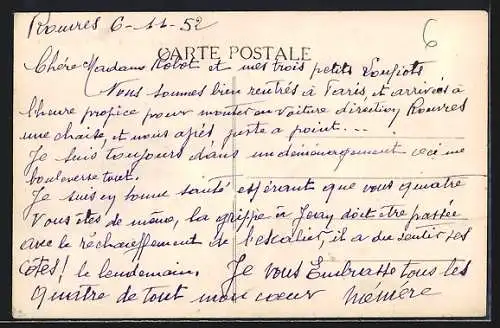 Rouvres 6-11-52
6
CARTE POSTALE
Chère Madame Robot et mes trois petits Loupiots
Nous sommes bien rentrés à Paris et arrivés à
l'heure propice pour monter en voiture direction Rouvres
une chaise, et nous après juste a point...
Je suis toujours dans un déménagement ceci me
bouleverse tout.
Je suis en bonne santé espérant que vous quatre
Vous êtes de même, la grippe à Jeny doit être passée
avec le réchauffement de l'escalier, il a du sentir ses
côtes! le lendemain. Je vous Embrasse tous les
quatre de tout mon cœur Mémère